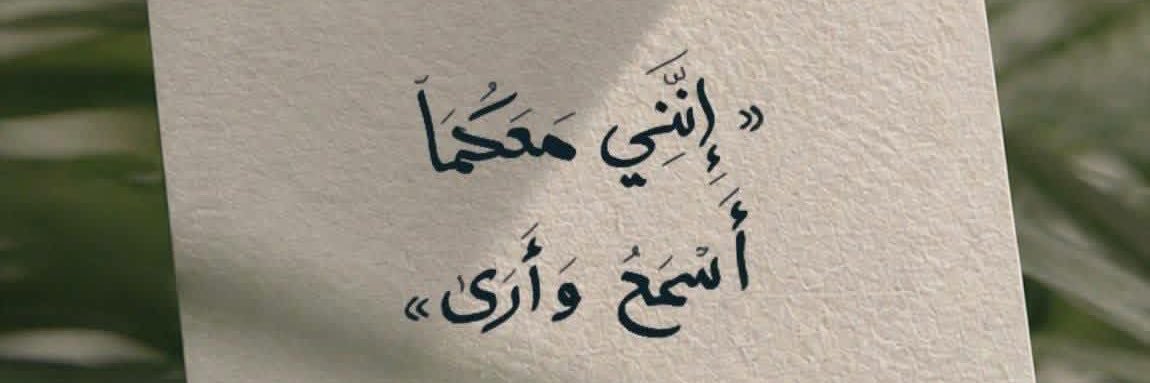 « إِنَّنِي مَعَكُمَا
أَسْمَعُ وَأَرَىٰ »